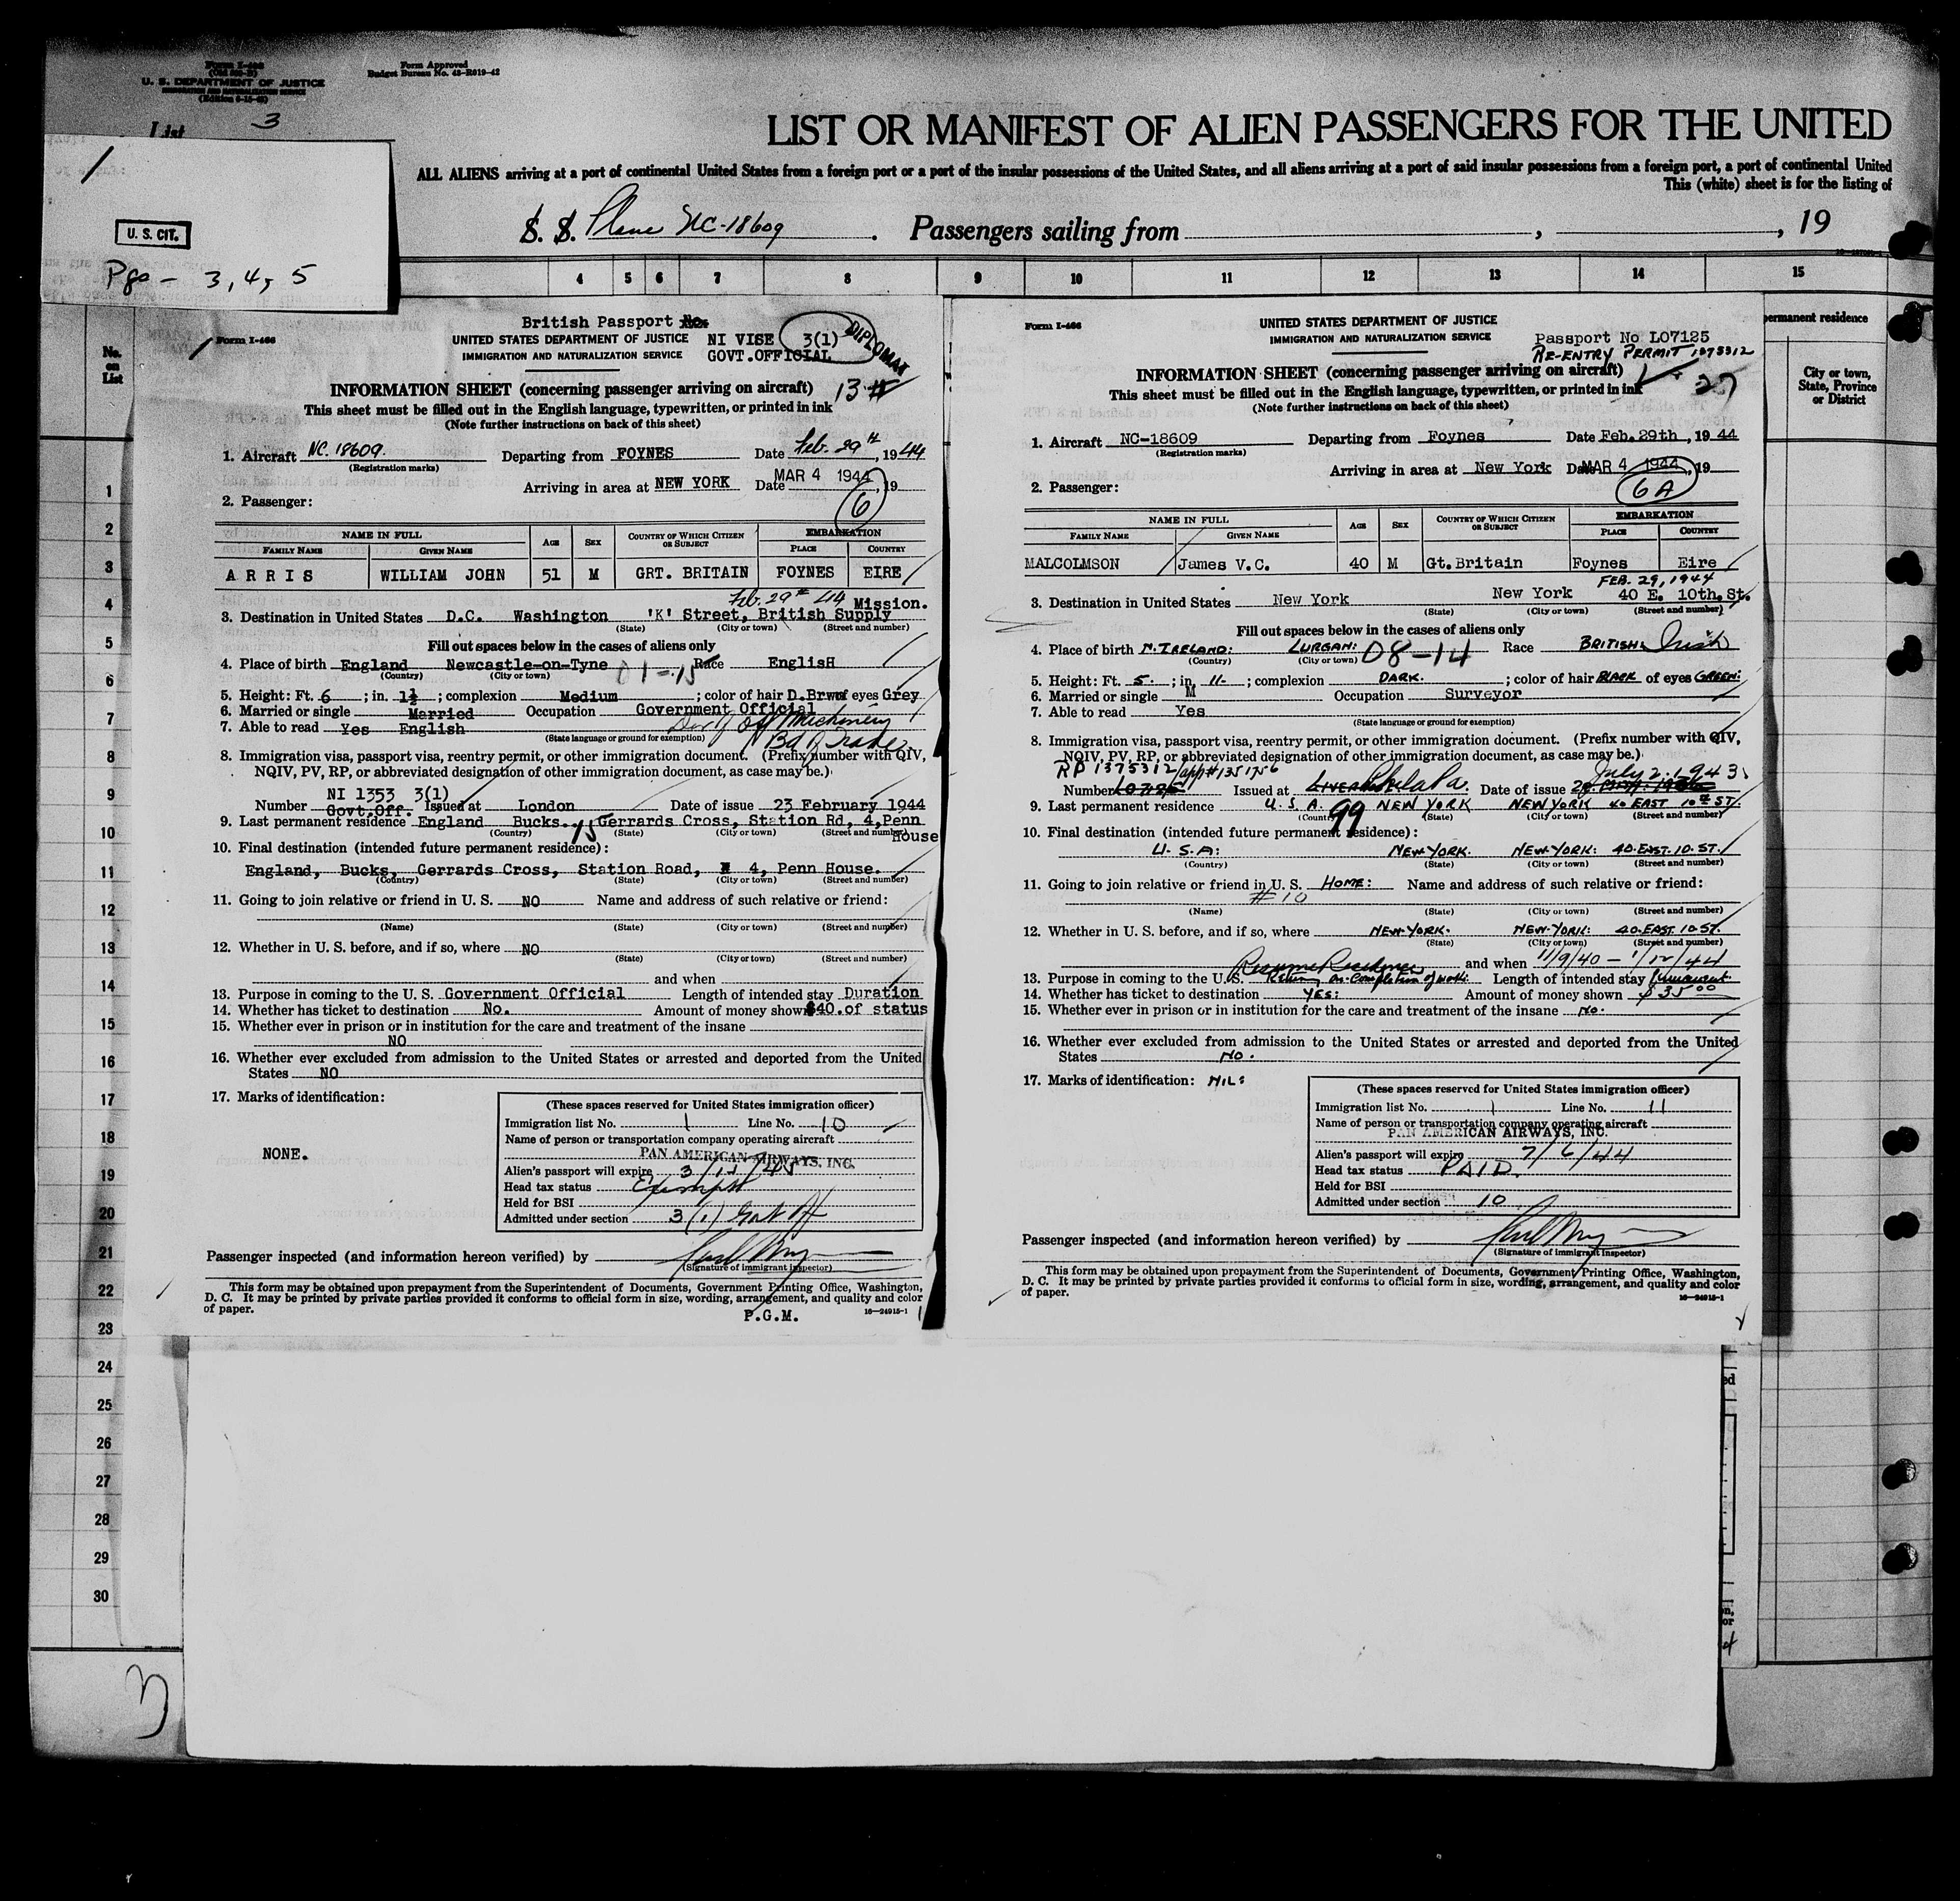 Form I-466
U. S. DEPARTMENT OF JUSTICE
IMMIGRATION AND NATURALIZATION SERVICE
Form Approved
Budget Bureau No. 43-R019-42
List 3
LIST OR MANIFEST OF ALIEN PASSENGERS FOR THE UNITED
ALL ALIENS arriving at a port of continental United States from a foreign port or a port of the insular possessions of the United States, and all aliens arriving at a port of said insular possessions from a foreign port, a port of continental United
This (white) sheet is for the listing of
S. S. Plane NC-18609 . Passengers sailing from , , 19
U. S. CIT.
Pgs - 3, 4, 5
4 5 6 7 8 9 10 11 12 13 14 15
No. on List
permanent residence
City or town, State, Province or District
1
2
3
4
5
6
7
8
9
10
11
12
13
14
15
16
17
18
19
20
21
22
23
24
25
26
27
28
29
30
3
British Passport No.
Form I-466
UNITED STATES DEPARTMENT OF JUSTICE NI VISE 3(1) DIPLOMAT
IMMIGRATION AND NATURALIZATION SERVICE GOVT.OFFICIAL
INFORMATION SHEET (concerning passenger arriving on aircraft) 13
This sheet must be filled out in the English language, typewritten, or printed in ink
(Note further instructions on back of this sheet)
1. Aircraft NC. 18609. Departing from FOYNES Date Feb. 29th, 1944
(Registration marks)
Arriving in area at NEW YORK Date MAR 4 1944, 19
2. Passenger: 6
NAME IN FULL AGE SEX COUNTRY OF WHICH CITIZEN OR SUBJECT EMBARKATION
FAMILY NAME GIVEN NAME PLACE COUNTRY
ARRIS WILLIAM JOHN 51 M GRT. BRITAIN FOYNES EIRE
Feb. 29th 44 Mission.
3. Destination in United States D.C. Washington 'K' Street, British Supply
(State) (City or town) (Street and number)
Fill out spaces below in the cases of aliens only
4. Place of birth England Newcastle-on-Tyne 01-15 Race EnglisH
(Country) (City or town)
5. Height: Ft. 6 ; in. 1½ ; complexion Medium ; color of hair D.Brwn of eyes Grey
6. Married or single Married Occupation Government Official
7. Able to read Yes English
(State language or ground for exemption)
Machinery
Bd of Trade
8. Immigration visa, passport visa, reentry permit, or other immigration document. (Prefix number with QIV,
NQIV, PV, RP, or abbreviated designation of other immigration document, as case may be.)
NI 1353 3(1)
Number Govt.Off. Issued at London Date of issue 23 February 1944
9. Last permanent residence England Bucks. 15 Gerrards Cross, Station Rd, 4,Penn House
(Country) (State) (City or town) (Street and number)
10. Final destination (intended future permanent residence):
England, Bucks, Gerrards Cross, Station Road, 4, Penn House.
(Country) (State) (City or town) (Street and number)
11. Going to join relative or friend in U. S. NO Name and address of such relative or friend:
(Name) (State) (City or town) (Street and number)
12. Whether in U. S. before, and if so, where NO
(State) (City or town) (Street and number)
and when
13. Purpose in coming to the U. S. Government Official Length of intended stay Duration
14. Whether has ticket to destination No. Amount of money shown $40. of status
15. Whether ever in prison or in institution for the care and treatment of the insane
NO
16. Whether ever excluded from admission to the United States or arrested and deported from the United
States NO
17. Marks of identification:
NONE.
(These spaces reserved for United States immigration officer)
Immigration list No. 1 Line No. 10
Name of person or transportation company operating aircraft
PAN AMERICAN AIRWAYS, INC.
Alien's passport will expire 3/12/45
Head tax status Exempt
Held for BSI
Admitted under section 3 (1) Govt Off
Passenger inspected (and information hereon verified) by
(Signature of immigrant inspector)
This form may be obtained upon prepayment from the Superintendent of Documents, Government Printing Office, Washington,
D. C. It may be printed by private parties provided it conforms to official form in size, wording, arrangement, and quality and color
of paper.
P.G.M. 16—24915-1
Form I-466
UNITED STATES DEPARTMENT OF JUSTICE
IMMIGRATION AND NATURALIZATION SERVICE
Passport No LO7125
RE-ENTRY PERMIT 1375312
INFORMATION SHEET (concerning passenger arriving on aircraft) 27
This sheet must be filled out in the English language, typewritten, or printed in ink
(Note further instructions on back of this sheet)
1. Aircraft NC-18609 Departing from Foynes Date Feb. 29th, 1944
(Registration marks)
Arriving in area at New York Date MAR 4 1944, 19
2. Passenger: 6A
NAME IN FULL AGE SEX COUNTRY OF WHICH CITIZEN OR SUBJECT EMBARKATION
FAMILY NAME GIVEN NAME PLACE COUNTRY
MALCOLMSON James V.C. 40 M Gt.Britain Foynes Eire
FEB. 29, 1944
3. Destination in United States New York New York 40 E. 10th. St.
(State) (City or town) (Street and number)
Fill out spaces below in the cases of aliens only
4. Place of birth N. IRELAND: LURGAN: 08-14 Race BRITISH: Irish
(Country) (City or town)
5. Height: Ft. 5. ; in. 11. ; complexion DARK. ; color of hair BLACK of eyes GREEN:
6. Married or single M Occupation Surveyor
7. Able to read Yes
(State language or ground for exemption)
8. Immigration visa, passport visa, reentry permit, or other immigration document. (Prefix number with QIV,
NQIV, PV, RP, or abbreviated designation of other immigration document, as case may be.)
RP 1375312/app# 1351756 July 2. 1943
Number LO7125 Issued at Phila Pa. Date of issue
9. Last permanent residence U.S.A. 99 NEW YORK NEW YORK 40 EAST 10th ST.
(Country) (State) (City or town) (Street and number)
10. Final destination (intended future permanent residence):
U.S.A: NEW YORK. NEW YORK: 40 EAST. 10. ST.
(Country) (State) (City or town) (Street and number)
11. Going to join relative or friend in U. S. HOME: Name and address of such relative or friend:
#10
(Name) (State) (City or town) (Street and number)
12. Whether in U. S. before, and if so, where NEW YORK. NEW YORK: 40 EAST 10 ST.
(State) (City or town) (Street and number)
Resume Residence and when 11/9/40 - 1/12/44
13. Purpose in coming to the U. S. Returning on completion of work. Length of intended stay Permanent
14. Whether has ticket to destination YES: Amount of money shown $35.00
15. Whether ever in prison or in institution for the care and treatment of the insane NO.
16. Whether ever excluded from admission to the United States or arrested and deported from the United
States NO.
17. Marks of identification: NIL:
(These spaces reserved for United States immigration officer)
Immigration list No. 1 Line No. 11
Name of person or transportation company operating aircraft
PAN AMERICAN AIRWAYS, INC.
Alien's passport will expire 7/6/44
Head tax status PAID
Held for BSI
Admitted under section 10
Passenger inspected (and information hereon verified) by
(Signature of immigrant inspector)
This form may be obtained upon prepayment from the Superintendent of Documents, Government Printing Office, Washington,
D. C. It may be printed by private parties provided it conforms to official form in size, wording, arrangement, and quality and color
of paper.
16—24915-1